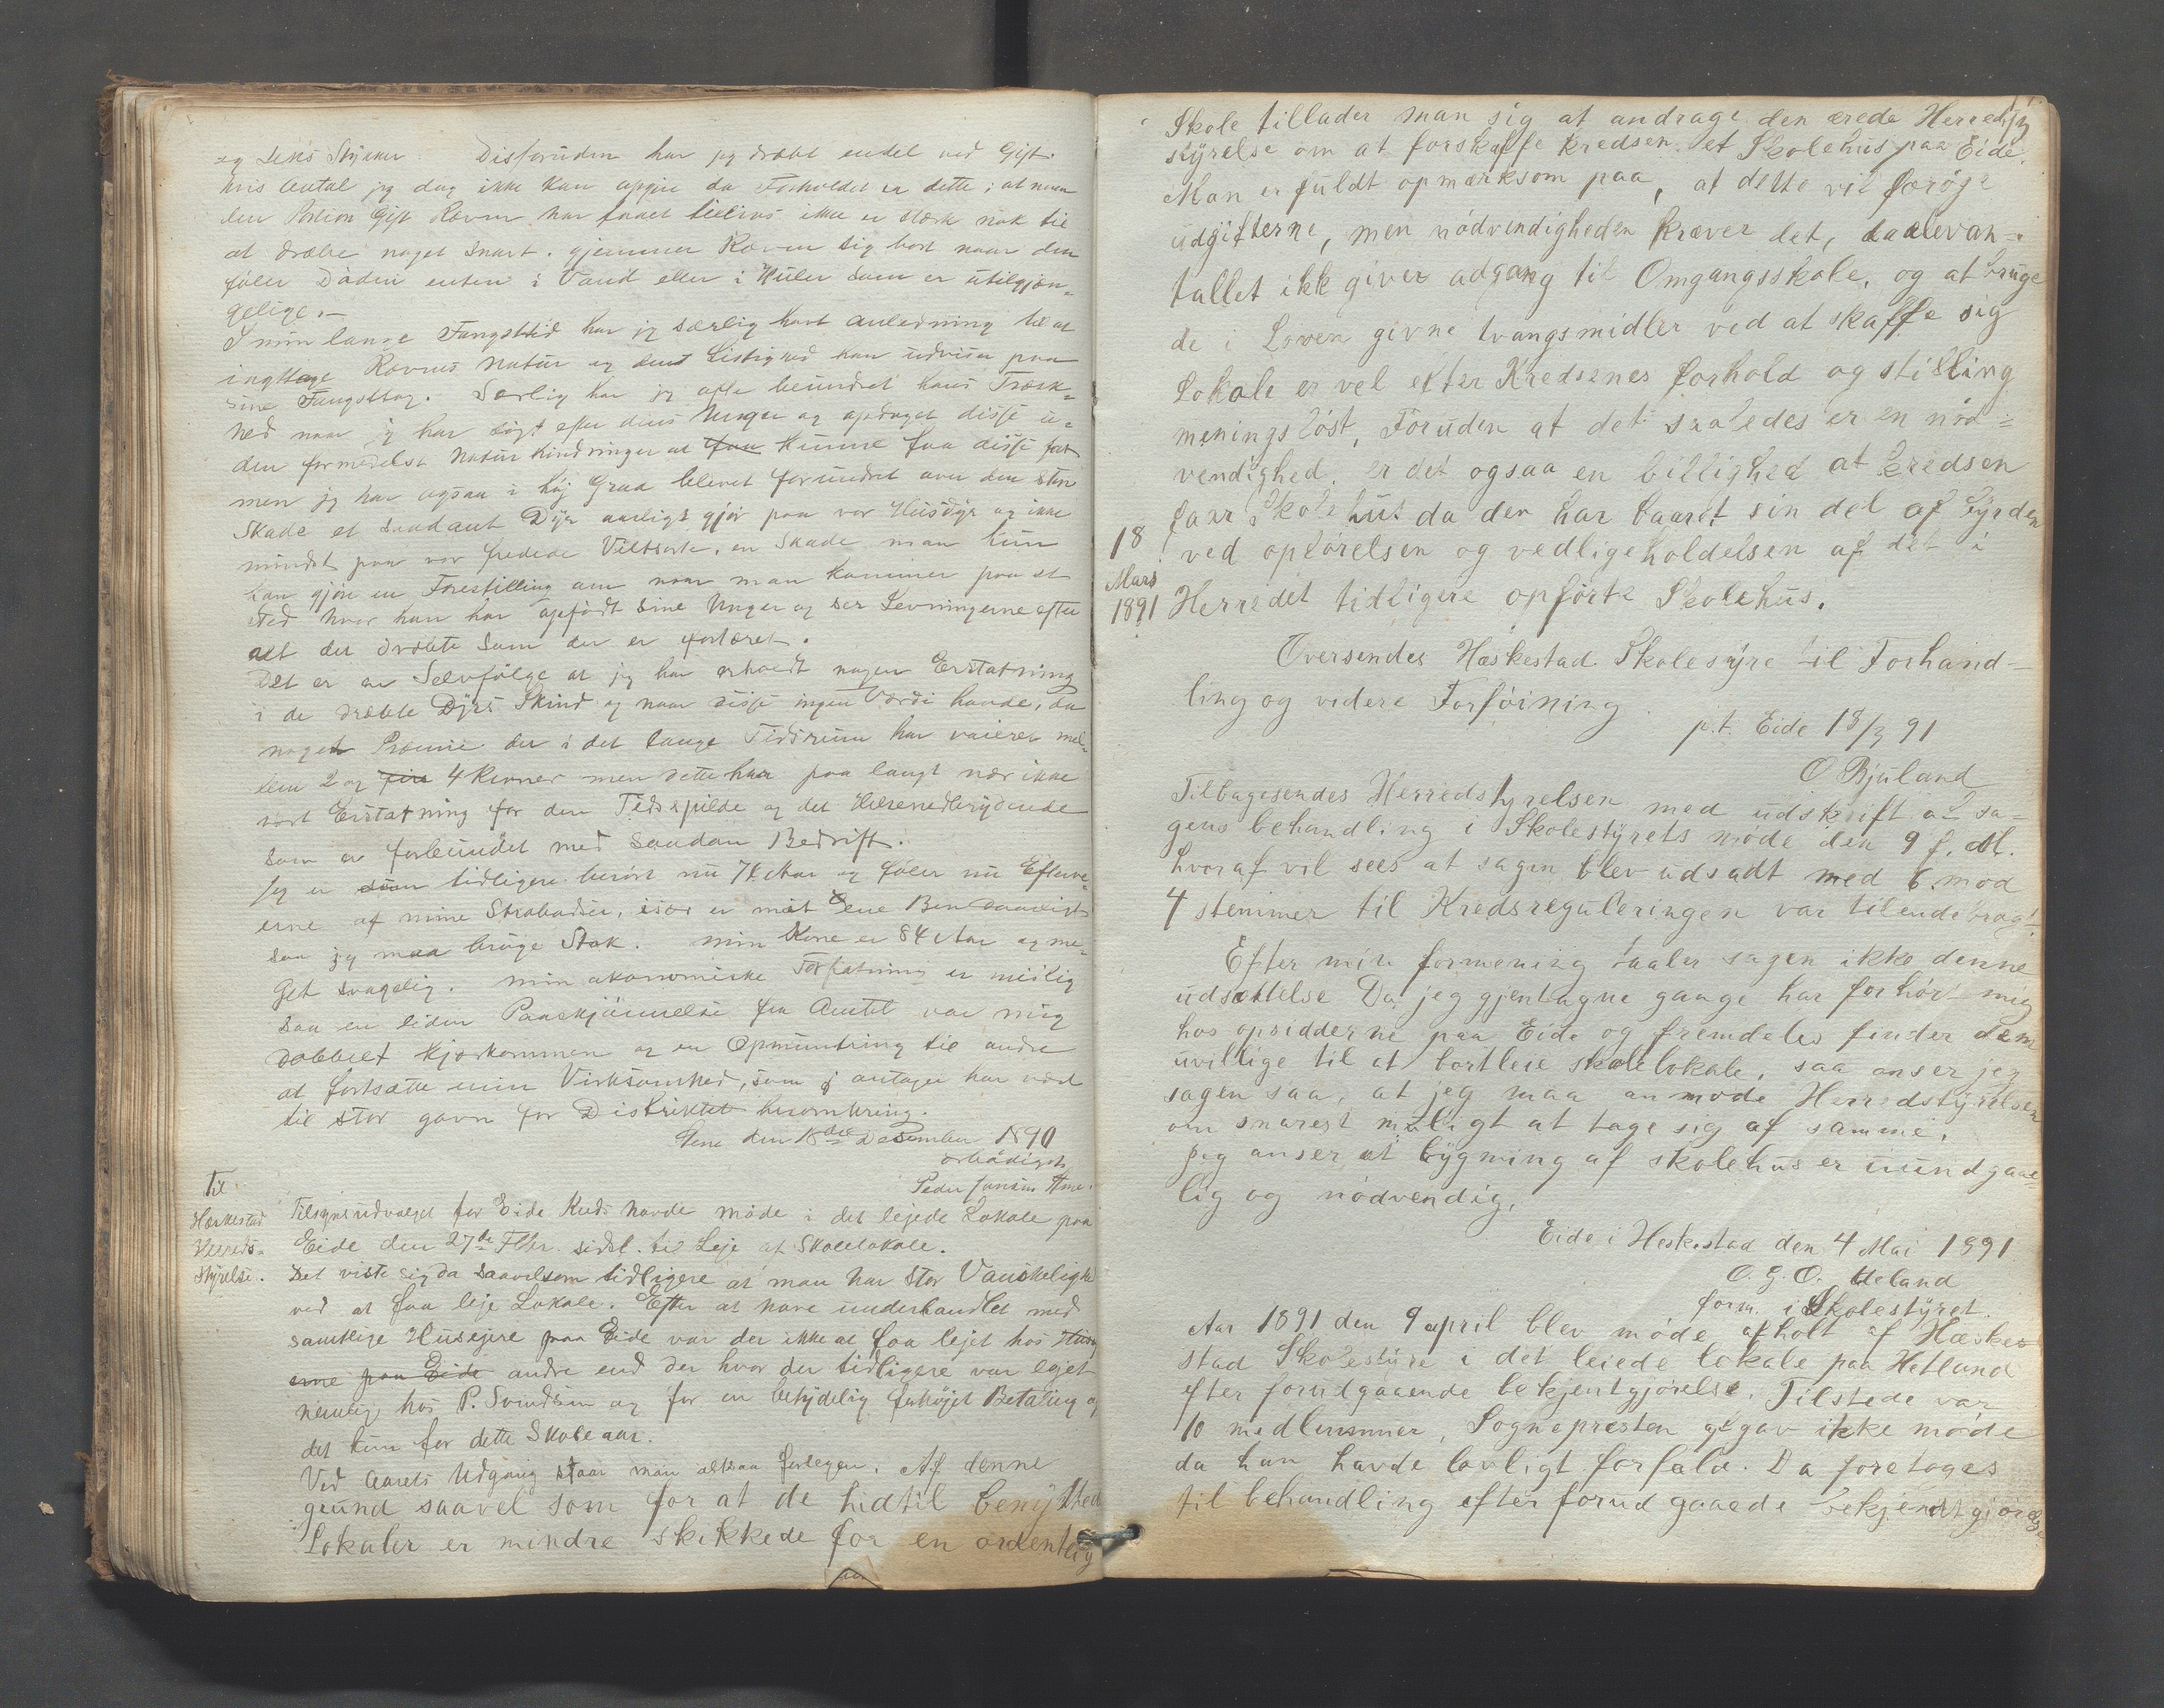 og sex Stykker. Desforuden har jeg dræbt endel ved Gift
hvis Antal jeg dog ikke kan opgive da Forholdet er dette; at naar
den Portion Gift Ræven har faaet tillivs ikke er stærk nok til
at dræbe noget snart, gjemmer Ræven sig bort naar den
føler Døden enten i Vand eller i Huler som er utilgjæn-
gelige.-
I min lange Fangsttid har jeg særlig havt anledning til at
iagttage Rævens Natur og den Listighed han udviser paa
sine Fangsttog. Særlig har jeg ofte beundret hans Træsk-
hed naar jeg har søgt efter dens Unger og opdaget disse u-
den formedelst Natur hindringer at faa kunne faa disse fat
men jeg har ogsaa i høj Grad blevet forundret over den store
Skade et saadant Dyr aarligt gjør paa vor Husdyr og ikke
mindst paa vor fredede Vildtarter, en Skade man kun
kan gjøre en Forestilling om naar man kommer paa et
Sted hvor han har opfødt sine Unger og ser Levningerne efter
alt det dræbte som der er fortæret.
Det er en Selvfølge at jeg har erholdt nogen Erstatning
i de dræbte Dyrs Skind og naar disse ingen Værdi havde, da
noget Præmie der i det lange Tidsrum har varieret mel-
lem 2 og fire 4 Kroner men dette har paa langt nær ikke
vært Erstatning for den Tidsspilde og det Helsenedbrydende
som er forbundet med saadan Bedrift.
Jeg er som tidligere berørt nu 74 Aar og føler nu Eftervé-
erne af mine Strabadser, især er mit ene Ben daarligt
saa jeg maa bruge Stok. Min Kone er 84 Aar og me-
get svagelig. Min økonomiske Forfatning er mislig
saa en liden Paaskjønnelse fra Amtet var mig
dobbelt kjærkommen og en Opmuntring til andre
at fortsætte min Virksomhed, som jeg antager har vært
til stor gavn for Distriktet heromkring.
den 18de December 1890
ærbødigst
Peder Jansen
Til
Hæskestad
Herreds-
Styrelse.
Tilsynsudvalget for Eide Kreds havde møde i det lejede Lokale paa
Eide den 27de Fbr. sidst. til Leje af Skolelokale.
Det viste sig da saavelsom tidligere at man har stor Vanskelighed
ved at faa leje Lokale. Efter at have underhandlet med
samtlige Husejere paa Eide var der ikke at faa lejet hos Husej
erne paa Eide andre end der hvor der tidligere var lejet
nemlig hos P. Svendsen og for en betydelig forhøjet Betaling og
det kun for dette Skoleaar.
Ved Aarets Udgang staar man altsaa forlegen. Af denne
grund saavel som for at de hidtil benyttede
Lokaler er mindre skikkede for en ordentlig
Skole tillader man sig at andrage den ærede Herreds-
styrelse om at forskaffe kredsen et Skolehus paa Eide.
Man er fuldt opmærksom paa, at dette vil forøge
udgifterne, men nödvendigheden kræver det, da elevan-
tallet ikk giver adgang til Omgangsskole, og at bruge
de i Loven givne tvangsmidler ved at skaffe sig
Lokale er vel efter Kredsenes forhold og stilling
meningsløst, Foruden at det saaledes er en nöd-
vendighed, er det ogsaa en billighed at kredsen
faar Skolehus da den har baaret sin del af byrden
ved opførelsen og vedligeholdelsen af det i
Herredet tidligere opførte Skolehus.
18
Mars
1891
Oversendes Hæskestad Skolestyre til Forhand-
ling og videre Forføining
p.t. Eide 18/3 91
O Bjuland
Tilbagesendes Herredstyrelsen med udskrift af sa-
gens behandling i Skolestyrets møde den 9 f. M.
hvoraf vil sees at sagen blev udsadt med 6 mod
4 stemmer til Kredsreguleringen var tilendebragt.
Efter min formening taaler sagen ikke denne
udsættelse Da jeg gjentagne gange har forhørt mig
hos opsidderne paa Eide og fremdeles finder dem
uvillige til at bortleie skolelokale, saa anser jeg
sagen saa, at jeg maa anmode Herredstyrelsen
om snarest muligt at tage sig af samme.
Jeg anser at bygning af skolehus er uundgaae-
lig og nödvendig.
Eide i Heskestad den 4 Mai 1891
O. G. O. Ueland
form. i Skolestyret.
Aar 1891 den 9 april blev møde afholt af Hæske-
stad Skolestyre i det leiede lokale paa Hetland
efter forudgaaende bekjentgjørelse. Tilstede var
10 medlemmer, Sognepresten gav ikke møde
da han havde lovligt forfald. Da foretoges
til behandling efter forud gaaede bekjendtgjørelse